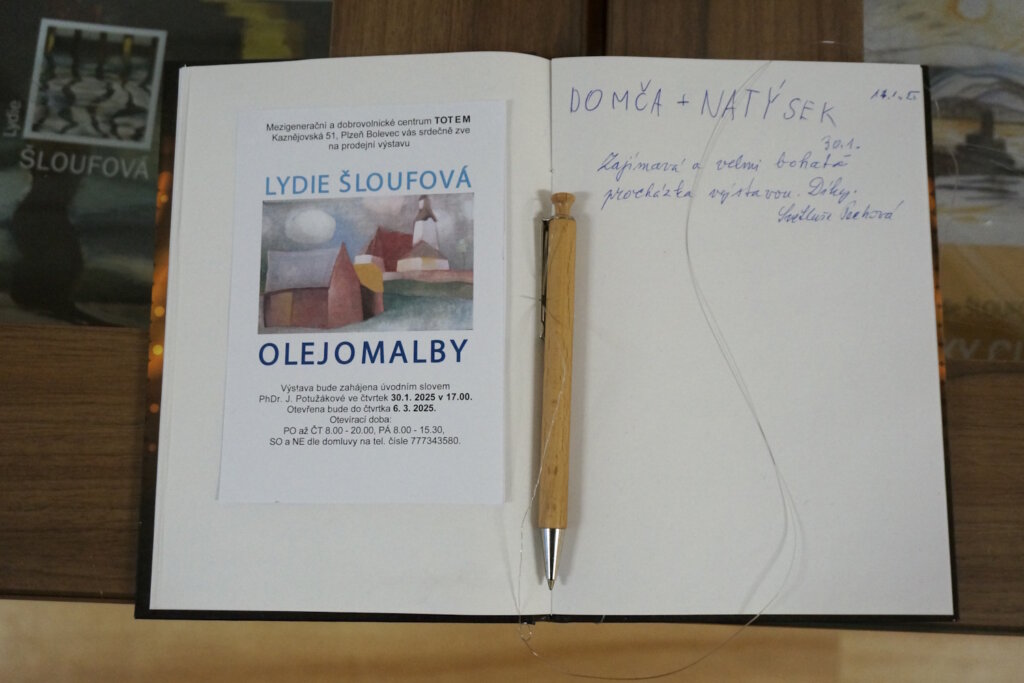 Lydie
ŠLOUFOVÁ
Mezigenerační a dobrovolnické centrum TOTEM
Kaznějovská 51, Plzeň Bolevec vás srdečně zve
na prodejní výstavu
LYDIE ŠLOUFOVÁ
OLEJOMALBY
Výstava bude zahájena úvodním slovem
PhDr. J. Potužákové ve čtvrtek 30.1. 2025 v 17.00.
Otevřena bude do čtvrtka 6. 3. 2025.
Otevírací doba:
PO až ČT 8.00 - 20.00, PÁ 8.00 - 15.30,
SO a NE dle domluvy na tel. čísle 777343580.
DOMČA + NATÝSEK
30.1.
Zajímavá a velmi bohatá
procházka výstavou. Díky.